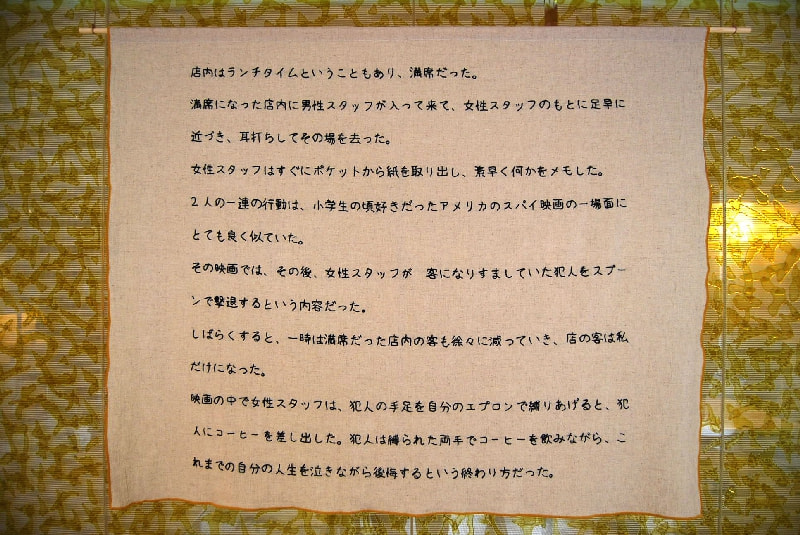 店内はランチタイムということもあり、満席だった。
満席になった店内に男性スタッフが入って来て、女性スタッフのもとに足早に
近づき、耳打ちしてその場を去った。
女性スタッフはすぐにポケットから紙を取り出し、素早く何かをメモした。
2人の一連の行動は、小学生の頃好きだったアメリカのスパイ映画の一場面に
とても良く似ていた。
その映画では、その後、女性スタッフが 客になりすましていた犯人をスプー
ンで撃退するという内容だった。
しばらくすると、一時は満席だった店内の客も徐々に減っていき、店の客は私
だけになった。
映画の中で女性スタッフは、犯人の手足を自分のエプロンで縛りあげると、犯
人にコーヒーを差し出した。犯人は縛られた両手でコーヒーを飲みながら、こ
れまでの自分の人生を泣きながら後悔するという終わり方だった。